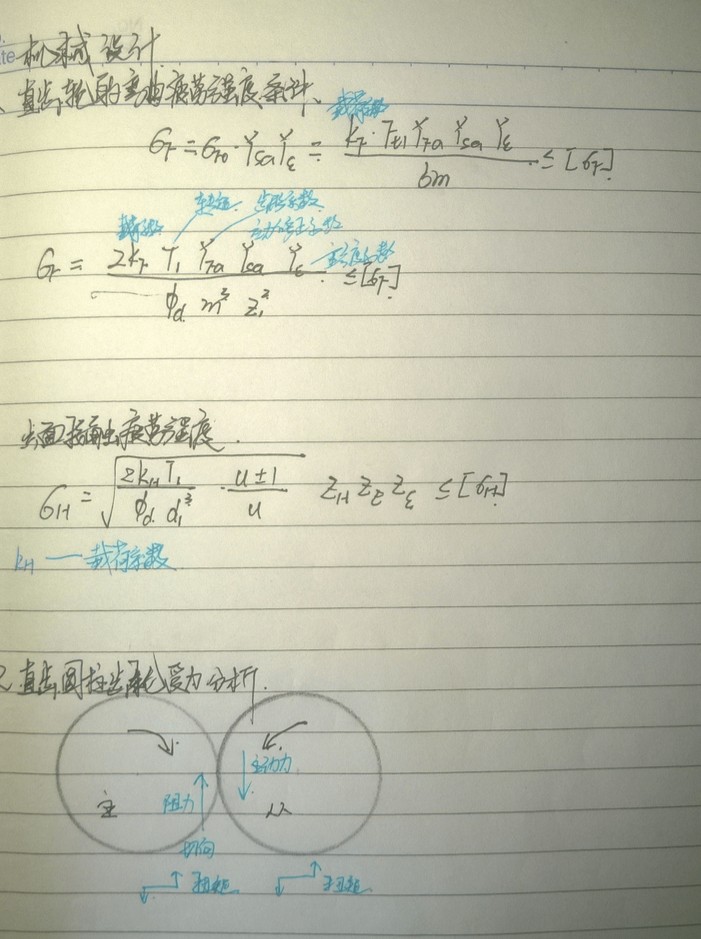 te 机械设计
、直齿轮的弯曲疲劳强度条件、
载荷系数
σF = σF0 · Ysa Yε = KF · Ft1 YFa Ysa Yε / bm ≤ [σF]
载荷系数 转矩 齿形系数
应力修正系数
σF = 2KF T1 YFa Ysa Yε / φd m³ z1² ≤ [σF] 重合度系数
齿面接触疲劳强度.
σH = √(2KH T1 / φd d1³ · u±1 / u) ZH ZE Zε ≤ [σH]
KH — 载荷系数
2 直齿圆柱齿轮受力分析.
主 阻力 主动力 从
切向
扭矩 扭矩